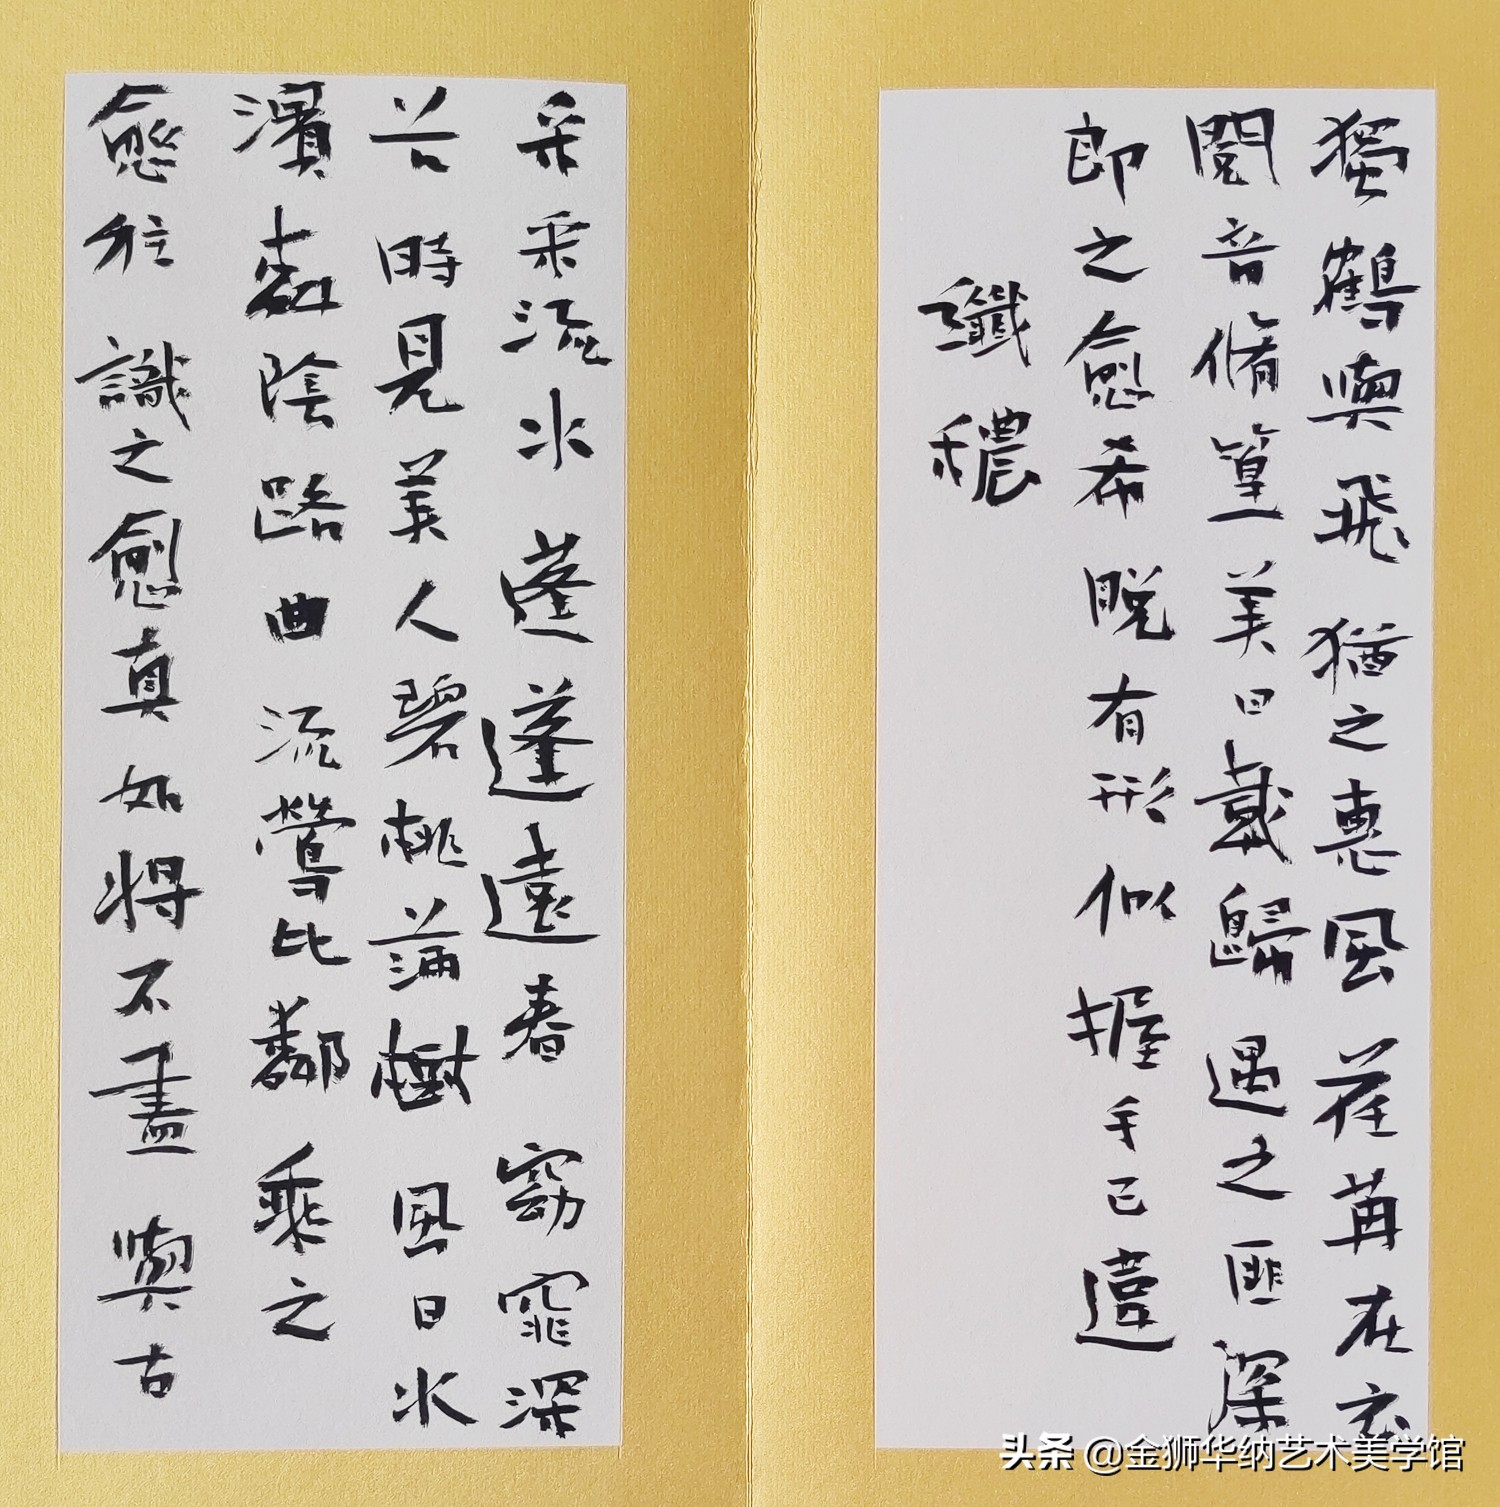 獨鶴與飛猶之惠風荏苒在衣
閱音脩篁美曰載歸遇之匪深
即之愈希脫有形似握手已違
纖穠
采采流水蓬蓬遠春窈窕深
谷時見美人碧桃滿樹風日水
濱柳陰路曲流鶯比鄰乘之
愈往識之愈真如將不盡與古
头条 @金狮华纳艺术美学馆